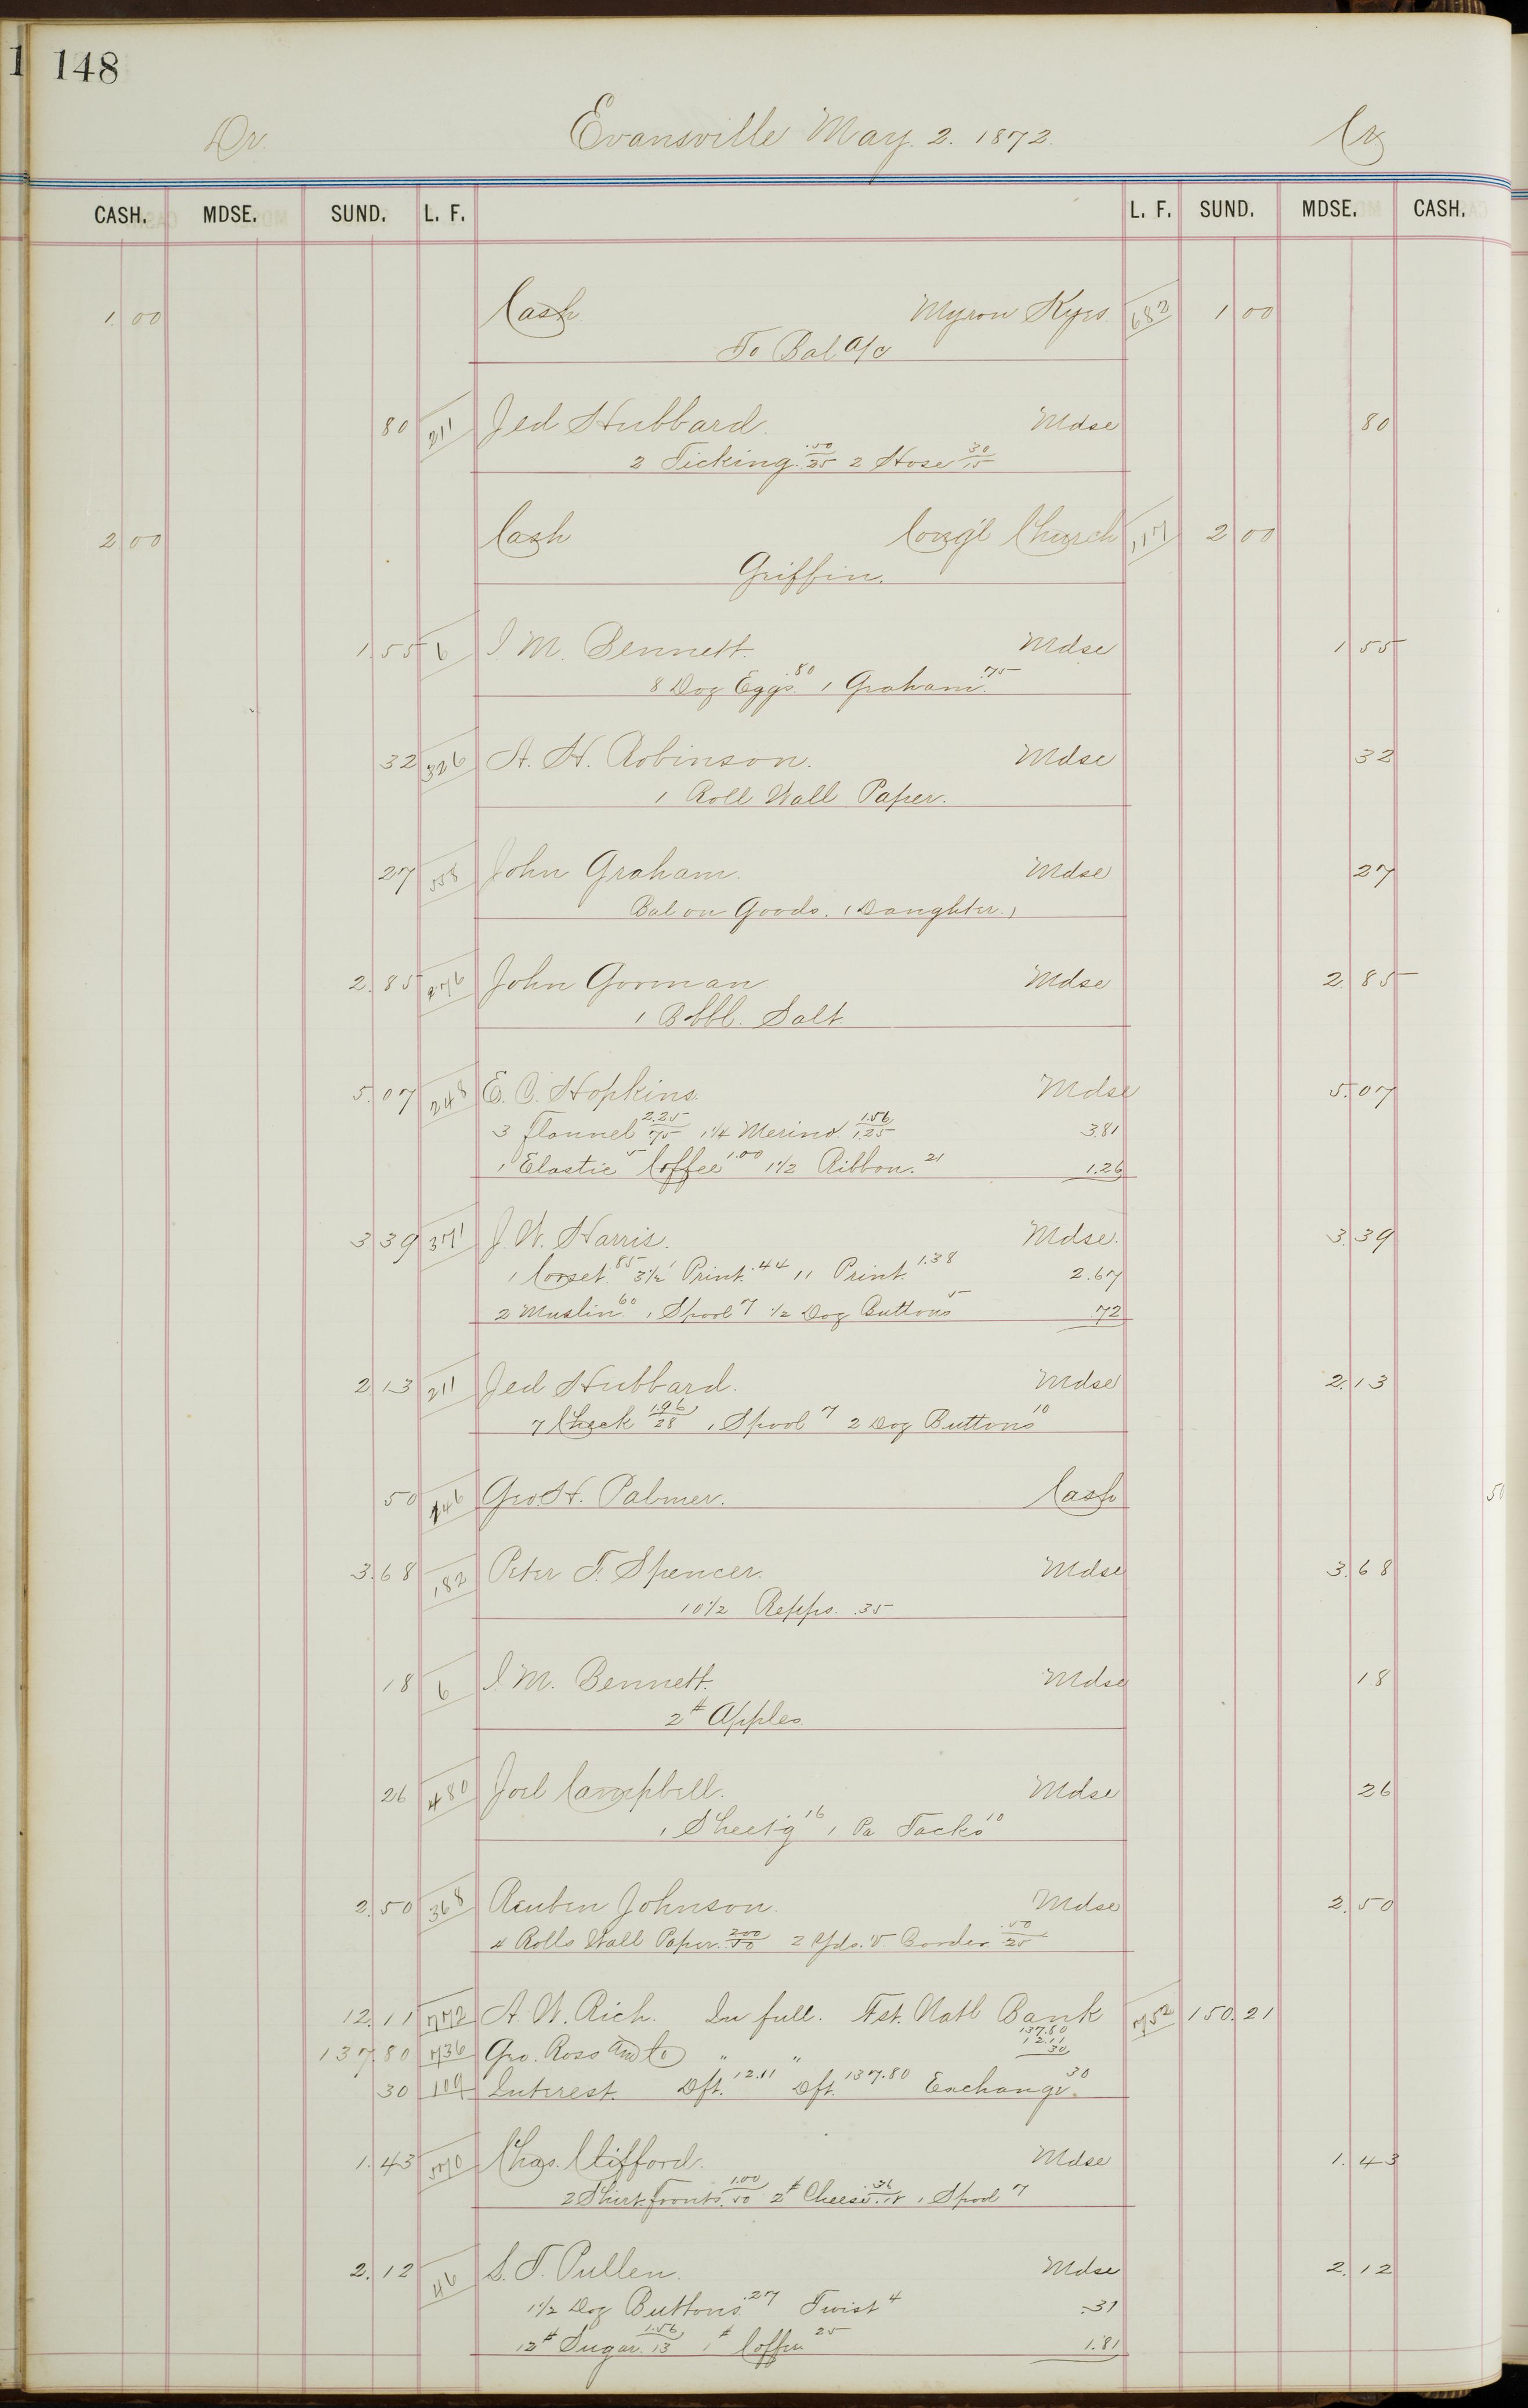 148
Dr. Evansville May. 2. 1872. Cr
CASH. MDSE. SUND. L. F. L. F. SUND. MDSE. CASH.
1.00 Cash Myron Kyes. 682 1 00
To Bal a/c
80 211 Jed Hubbard. Mdse 80
2 Ticking .50/25 2 Hose 30/15
2 00 Cash Cong'l Church 117 2 00
Griffin.
1.55 6 I. M. Bennett. Mdse 1 55
8 Doz Eggs. .80 1 Graham. .75
32 326 A. H. Robinson. Mdse 32
1 Roll Wall Paper.
27 558 John Graham. Mdse 27
Bal on Goods. (Daughter.)
2.85 276 John Gorman Mdse 2.85
1 Bbbl. Salt.
5.07 248 E. C. Hopkins. Mdse 5.07
3 Flannel 2.25/75 1 1/4 Merino. 1.56/1.25 3.81
1 Elastic 5 Coffee 1.00 1 1/2 Ribbon. 21 1.26
3 39 371 J. W. Harris. Mdse. 3.39
1 Corset. 85 3 1/2 Print. .44 11 Print. 1.38 2.67
2 Muslin 60 1 Spool 7 1/2 Doz Buttons 5 72
2 13 211 Jed Hubbard. Mdse 2.13
7 Check 1.96/28 1 Spool 7 2 Doz Buttons 10
50 246 Geo. H. Palmer. Cash 50
3.68 182 Peter F. Spencer. Mdse 3.68
10 1/2 Repps. .35
18 6 I. M. Bennett. Mdse 18
2# Apples
26 480 Joel Campbell. Mdse 26
1 Sheet'g 16 1 Pa Tacks 10
2.50 368 Reuben Johnson. Mdse 2.50
4 Rolls Wall Paper. 200/50 2 Yds. V. Border .50/25
12.11 772 A. W. Rich. In full. Fst. Natl Bank 752 150.21
137.80 736 Geo. Ross and Co " " 137.80 12.11 30
30 109 Interest. Dft. 12.11 Dft. 137.80 Exchange. 30
1.43 570 Chas. Clifford. Mdse 1.43
2 Shirt fronts. 1.00/50 2# Cheese .36/18 1 Spool 7
2.12 46 S. T. Pullen. Mdse 2.12
1 1/2 Doz Buttons. .27 Twist 4 .31
12# Sugar. 1.56/13 1# Coffee 25 1.81